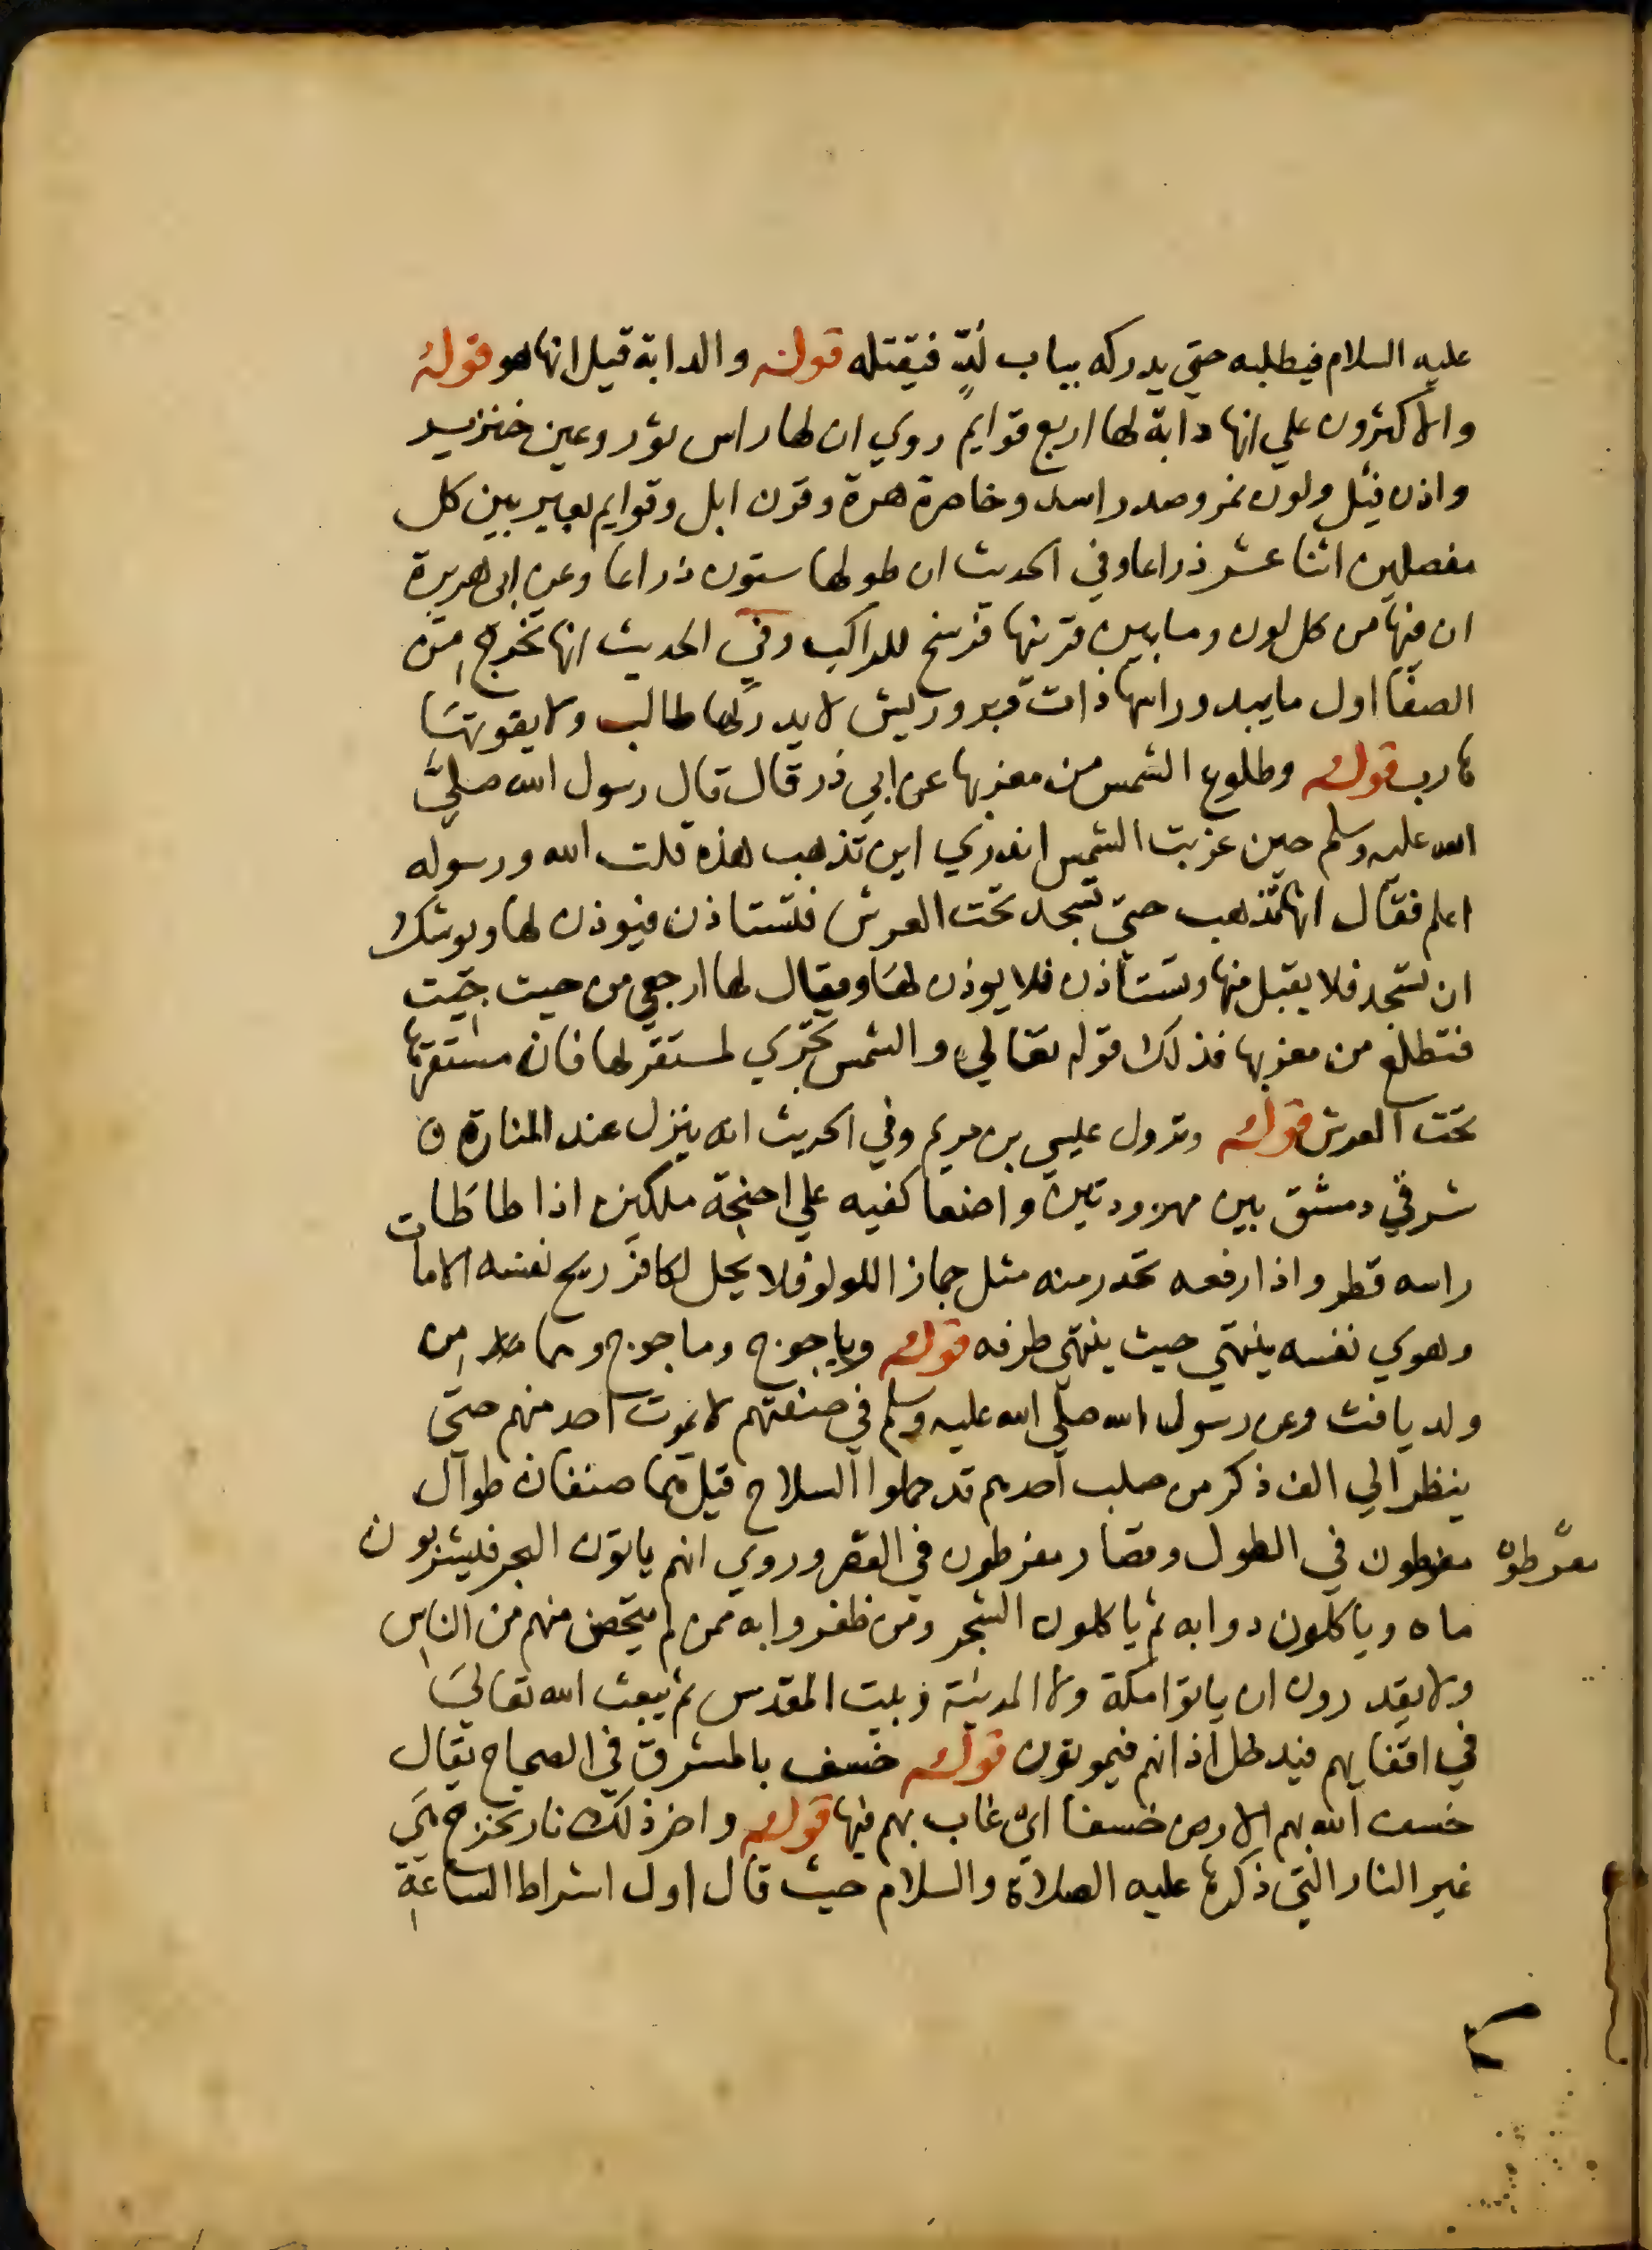 عليه السلام فيطلبه حتي يدركه بباب لدٍّ فيقتله قوله والدابة قيل انها هو قوله
والاكثرون علي انها دابة لها اربع قوايم روي ان لها راس ثور وعين خنزير
واذن فيل ولون نمر وصدر اسد وخاصرة هرة وقرن ابل وقوايم بعير بين كل
مفصلين اثنا عشر ذراعا وفي الحديث ان طولها ستون ذراعا وعن ابي هريرة
ان فيها من كل لون وما بين قرنيها فرسخ للراكب وفي الحديث انها تخرج من
الصفا اول ما يبدو راسها ذات وبر وريش لا يدركها طالب ولا يفوتها
هارب قوله وطلوع الشمس من مغربها عن ابي ذر قال قال رسول الله صلي
الله عليه وسلم حين غربت الشمس اتدري اين تذهب هذه قلت الله ورسوله
اعلم فقال انها تذهب حتي تسجد تحت العرش فتستاذن فيوذن لها ويوشك
ان تسجد فلا يقبل منها وتستأذن فلا يوذن لها ويقال لها ارجعي من حيث جيت
فتطلع من مغربها فذلك قوله تعالي والشمس تجري لمستقر لها فان مستقرها
تحت العرش قوله ونزول عيسي بن مريم وفي الحديث انه ينزل عند المنارة
شرقي دمشق بين مهرودتين واضعا كفيه علي اجنحة ملكين اذا طاطات
راسه قطر واذا رفعه تحدر منه مثل جمان اللولو فلا يحل لكافر ريح نفسه الا مات
وهوي نفسه ينتهي حيث ينتهي طرفه قوله وياجوج وماجوج وهما من
ولد يافث وعن رسول الله صلي الله عليه وسلم في صفتهم لا يموت احد منهم حتي
ينظر الي الف ذكر من صلب احدهم قد حملوا السلاح قيل هما صنفان طوال
مفرطون في الطول وقصار مفرطون في القصر وروي انهم ياتون البحر فيشربون
مفرطون
ماه وياكلون دوابه ثم ياكلون الشجر ومن ظفروا به ممن لم يتحصن منهم من الناس
ولا يقدرون ان ياتوا مكة ولا المدينة وبيت المقدس ثم يبعث الله تعالي
في اقفايهم فيدخل اذانهم فيموتون قوله خسف بالمشرق في الصحاح يقال
خسف الله بهم الارض خسفا اي غاب بهم فيها قوله واخر ذلك نار تخرج هي
غير النار التي ذكرها عليه الصلاة والسلام حيث قال اول اشراط الساعة